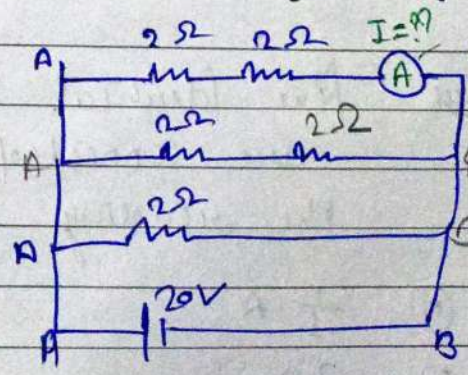 I=??
2Ω 2Ω
A A
2Ω 2Ω
A
2Ω
A
20V
A B